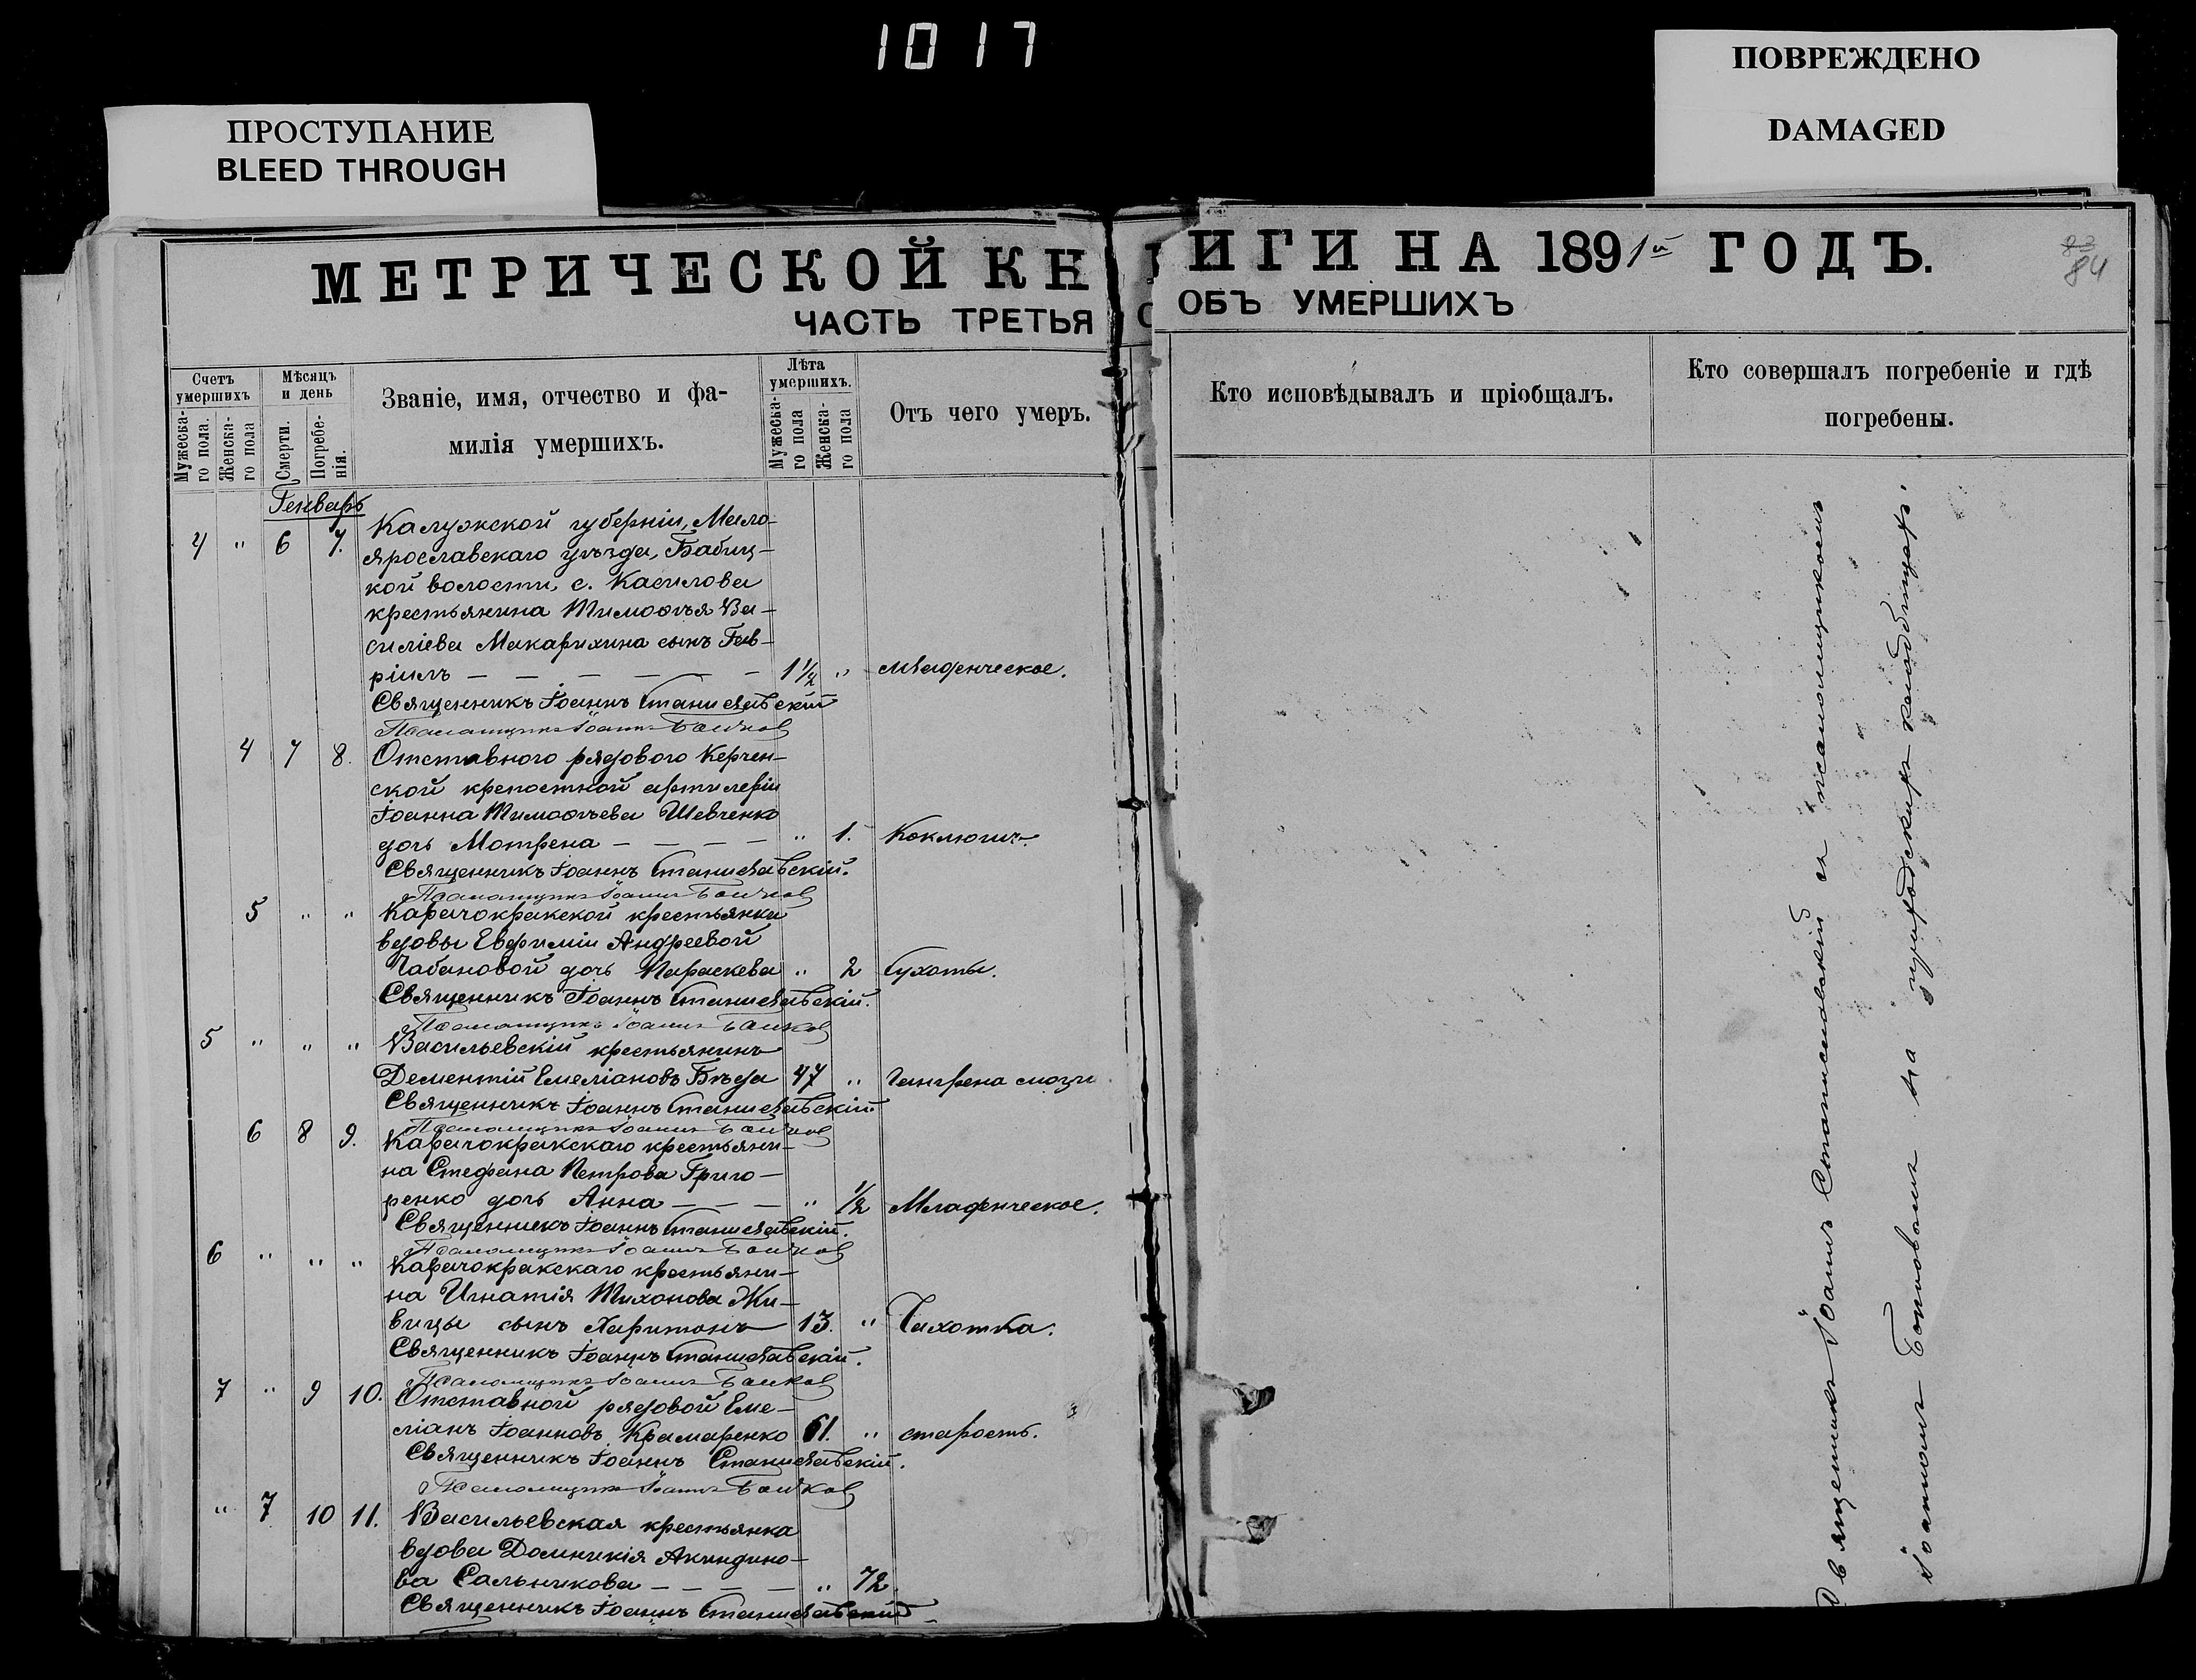 1017
ПРОСТУПАНИЕ
BLEED THROUGH
ПОВРЕЖДЕНО
DAMAGED
МЕТРИЧЕСКОЙ КН
ЧАСТЬ ТРЕТЬЯ
Счетъ умершихъ
Мужеска-го пола.
Женска-го пола
Мѣсяцъ и день
Смерти.
Погребе-нія.
Званіе, имя, отчество и фа-
милія умершихъ.
Лѣта умершихъ.
Мужеска-го пола
Женска-го пола
Отъ чего умеръ.
Генварь
4 " 6 7. Калужской губерніи, Мало-
ярославскаго уѣзда, Бабиц-
кой волости, с. Касилова
крестьянина Тимоѳѣя Ва-
силіева Макарихина сынъ Гав-
ріилъ — — — — — — 1½ " младенческое.
Священникъ Іоаннъ Станиславскій
Псаломщикъ Іоаннъ
4 7 8. Отставного рядового Керчен-
ской крепостной артилеріи
Іоанна Тимоѳѣева Шевченко
дочь Мотрена — — — — " 1. Коклюшъ.
Священникъ Іоаннъ Станиславскій.
Псаломщикъ Іоаннъ
5 " " Карачокракской крестьянки
вдовы Евфиміи Андреевой
Чабановой дочь Параскева " 2 Сухоты.
Священникъ Іоаннъ Станиславскій.
Псаломщикъ Іоаннъ
5 " " " Васильевскій крестьянинъ
Дементій Емеліановъ Бѣда 47 " Гангрена
Священникъ Іоаннъ Станиславскій
Псаломщикъ Іоаннъ
6 8 9. Карачокракскаго крестьяни-
на Стефана Петрова Григо-
ренко дочь Анна — — — " ½ Младенческое.
Священникъ Іоаннъ Станиславскій.
Псаломщикъ Іоаннъ
6 " " " Карачокракскаго крестьяни-
на Игнатія Тихонова Жи-
вицы сынъ Харитонъ 13. " Чахотка.
Священникъ Іоаннъ Станиславскій.
Псаломщикъ Іоаннъ
7 " 9 10. Отставной рядовой Еме-
ліанъ Іоанновъ Крамаренко 61. " старость.
Священникъ Іоаннъ Станиславскій.
Псаломщикъ Іоаннъ
" 7 10 11. Васильевская крестьянка
вдова Домникія Акиндино-
ва Сальникова — — — — " 72
Священникъ Іоаннъ Станиславскій
ИГИ НА 1891й ГОДЪ.
ОБЪ УМЕРШИХЪ
83
84
Кто исповѣдывалъ и пріобщалъ.
Кто совершалъ погребеніе и гдѣ
погребены.
Священникъ Іоаннъ Станиславскій съ псаломщикомъ
Іоанномъ на приходскомъ кладбищѣ.